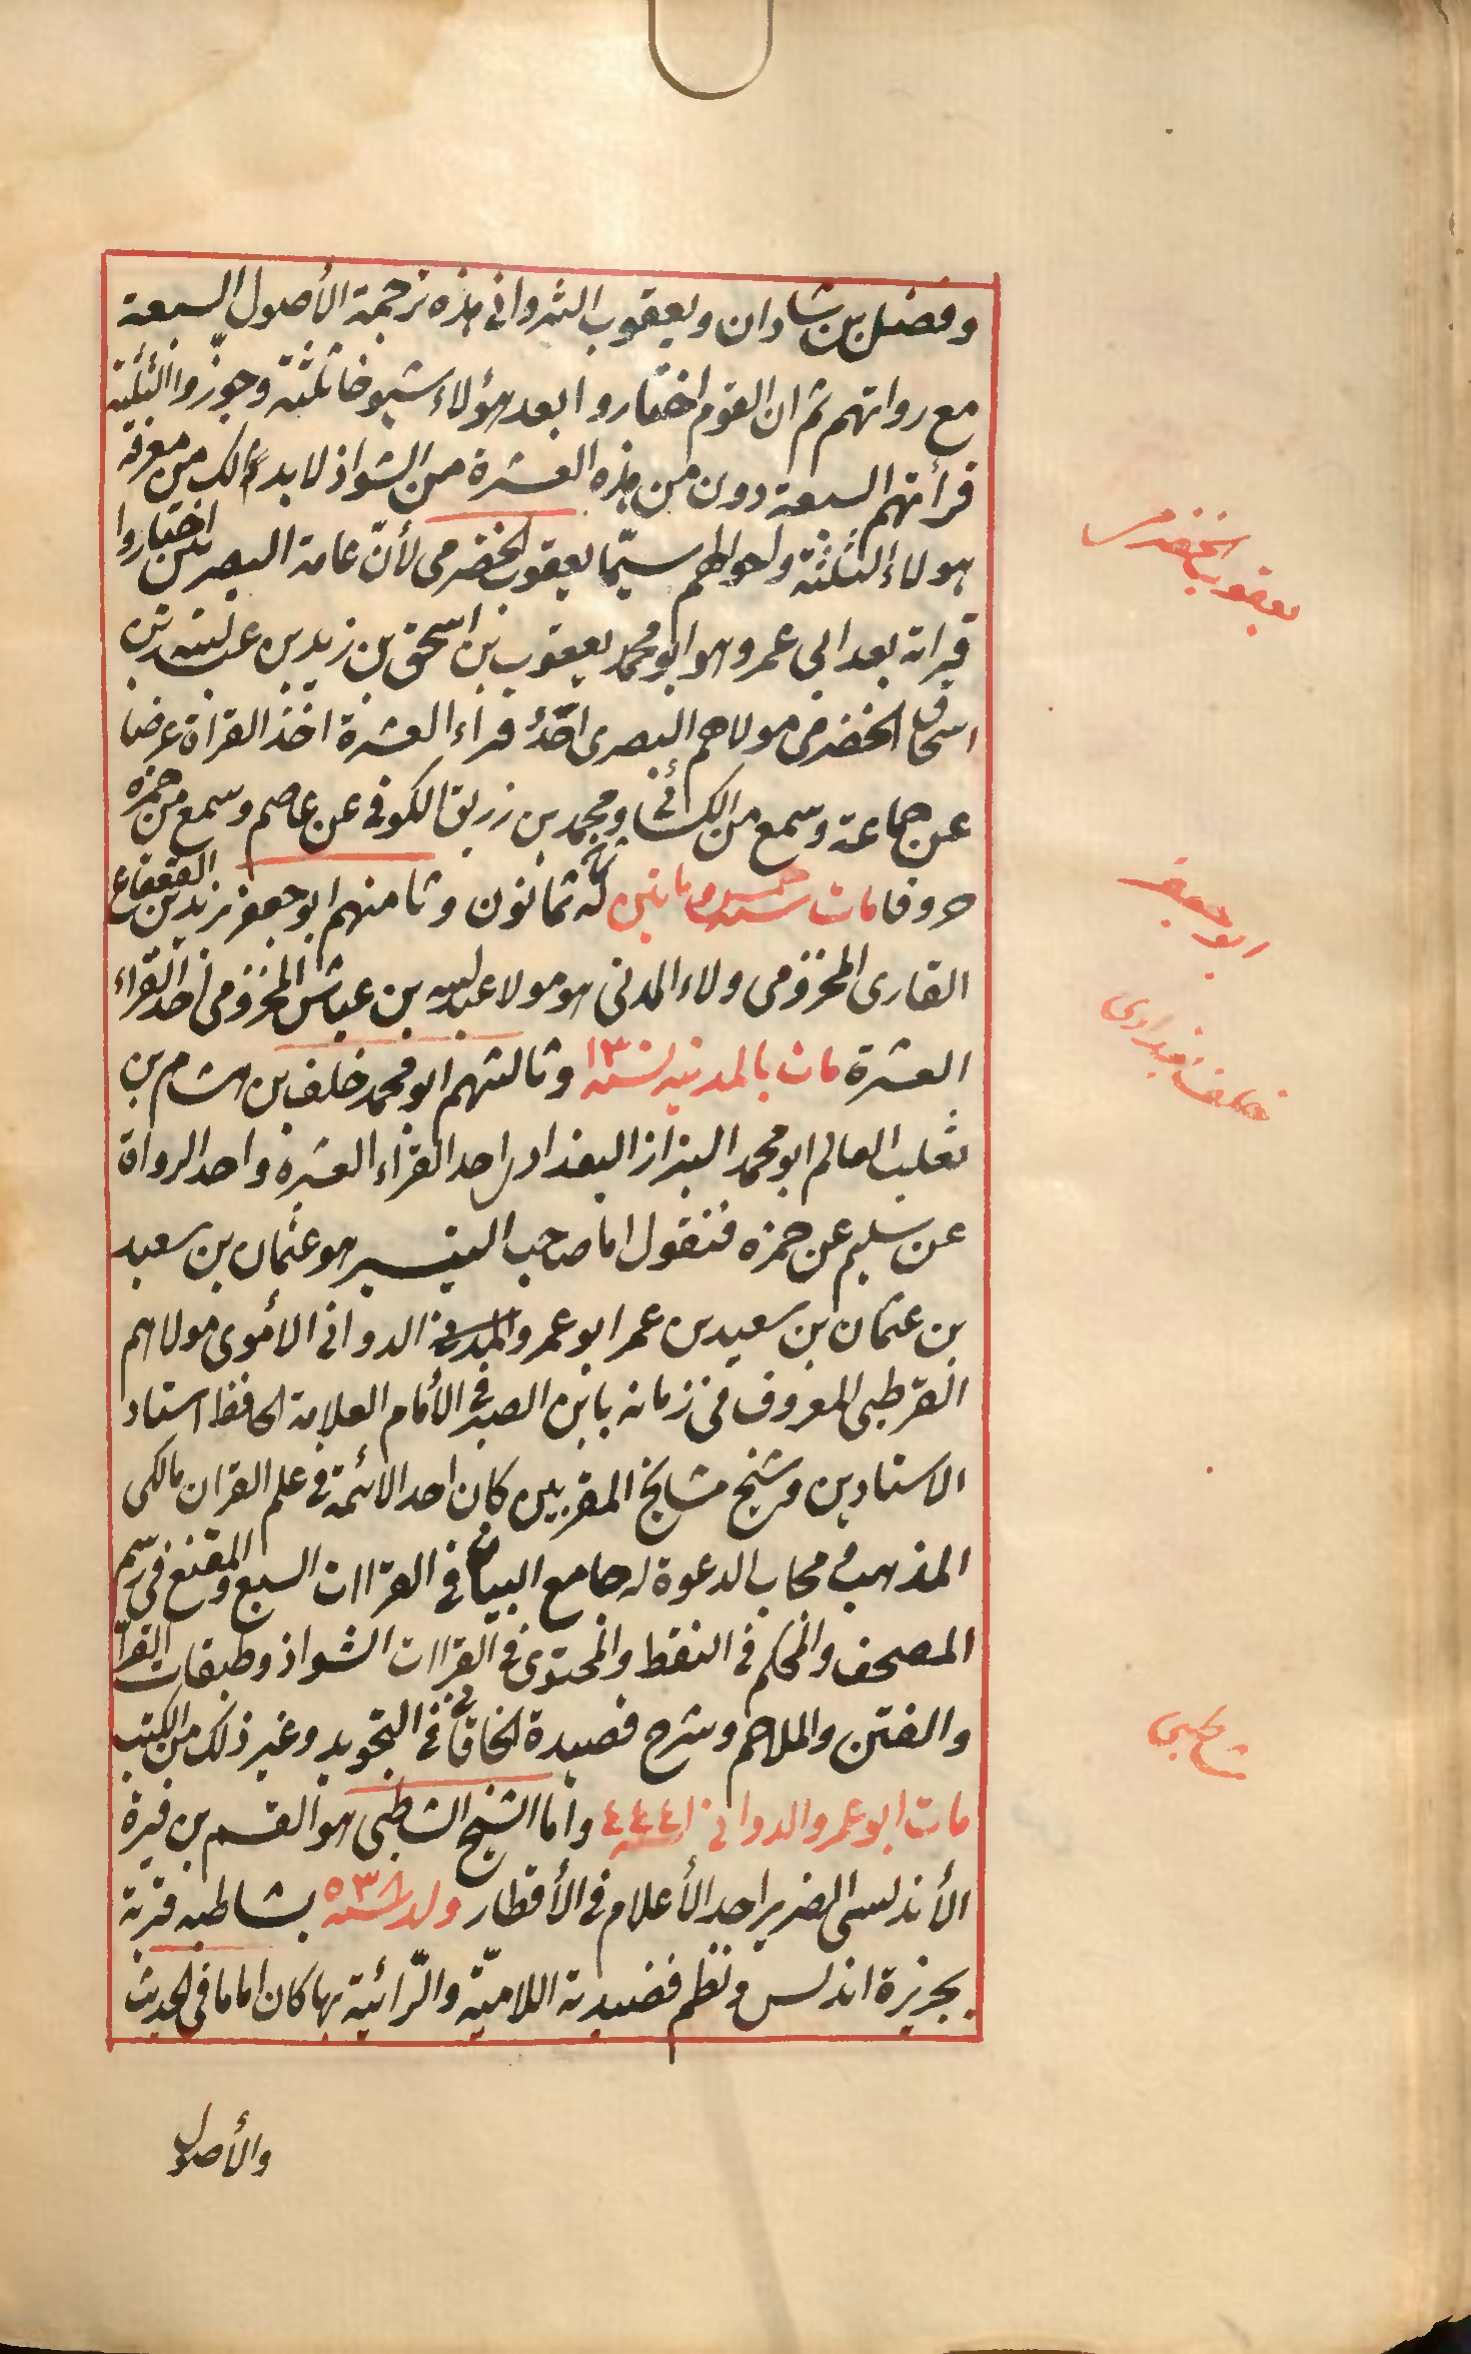 وفضل بن شاذان ويعقوب الشروانى هذه ترجمة الأصول السبعة
مع رواتهم ثم ان القوم اختاروا بعد هؤلاء شيوخا ثلثة وجوزوا الثلثة
قرأتهم السبعة دون من هذه العشرة من الشواذ لا بد لك من معرفة
هولاء الثلثة واحوالهم سيّما يعقوب الحضرمى لأنّ عامة البصريين اختاروا
قراته بعد ابى عمرو هو ابو محمد يعقوب بن اسحق بن زيد بن عبد الله بن
اسحاق الحضرمى مولاهم البصرى احد قراء العشرة اخذ القراة عرضا
عن جماعة وسمع من الكسائى ومحمد بن زريق الكوفى عن عاصم وسمع من حمزه
حروفا مات سنه خمس ومايتين له ثمانون وثامنهم ابو جعفر يزيد بن القعقاع
القارى المخزومى ولاء المدنى هو مولا عبد الله بن عياش المخزومى احد القراء
العشرة مات بالمدينه سنه ١٣٠ وثالثهم ابو محمد خلف بن هشام بن
ثعلب العالم ابو محمد البزاز البغدادى احد القراء العشره واحد الرواة
عن سليم عن حمزه فنقول اما صاحب التيسير هو عثمان بن سعيد
بن عثمان بن سعيد بن عمر ابو عمرو الدوانى الأموى مولاهم
القرطبى المعروف فى زمانه بابن الصيرفى الأمام العلامة الحافظ استاد
الاستادين وشيخ مشايخ المقريين كان احد الائمة فى علم القران مالكى
المذهب مجاب الدعوة له جامع البيان فى القراات السبع والمقنع فى رسم
المصحف والمحكم فى النقط والمحتوى فى القراات الشواذ وطبقات القرّا
والفتن والملاحم وشرح قصيدة الخاقانى فى التجويد وغير ذلك من الكتب
مات ابو عمرو الدوانى سنه ٤٤٤ واما الشيخ الشاطبى هو القسم بن فيرة
الأندلسى الضرير احد الأعلام فى الأقطار ولد سنه ٥٣٨ بشاطبه قرية
بجزيرة اندلس ونظم قصيدته اللاميّة والرّائية بها كان اماما فى الحديث
والأصول
يعقوب الحضرمى
ابو جعفر
خلف بغدادى
شاطبى